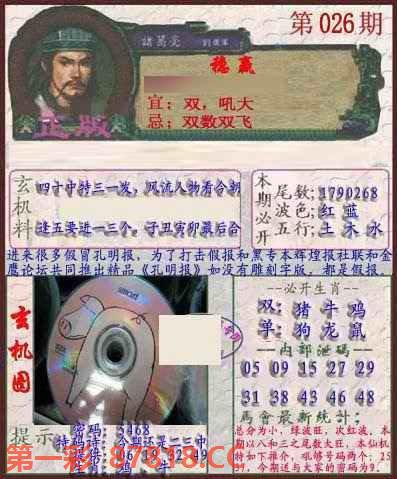 第026期
諸葛亮
劉備軍
稳赢
宜：双，吼大
忌：双数双飞
正版
玄机料
四十中特三一发，风流人物看今朝
逢五要进一三个。子丑寅卯最后合
本期必开
尾数:1790268
波色:红 蓝
五行:土 木 水
进来很多假冒孔明报，为了打击假报和黑专本辉煌报社联和金
鹰论坛共同推出精品《孔明报》如没有雕刻字版，都是假报。
玄机图
smart
--必开生肖--
双:猪 牛 鸡
单:狗 龙 鼠
--内部泄码--
05 09 15 27 29
31 38 43 46 48
馬會最新統計:
总分为小，绿波旺，次红波，本
期以八和三之尾数大旺，本仙机
特如下推介，吼够号码两个，25
09，今期送与大家的密码为9.
提示
密码: 5468
特码诗: 今期还是二三中
06 18 32 49
生肖: 鸡 牛
第一彩：87818.CC